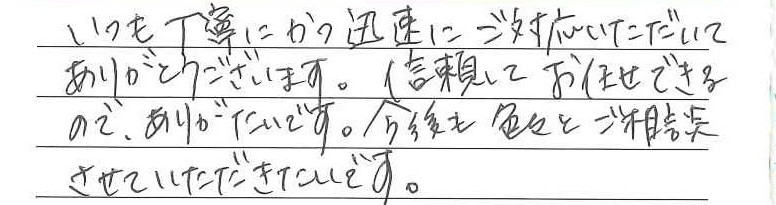 いつも丁寧にかつ迅速にご対応いただいて
ありがとうございます。信頼してお任せできる
ので、ありがたいです。今後も色々とご相談
させていただきたいです。